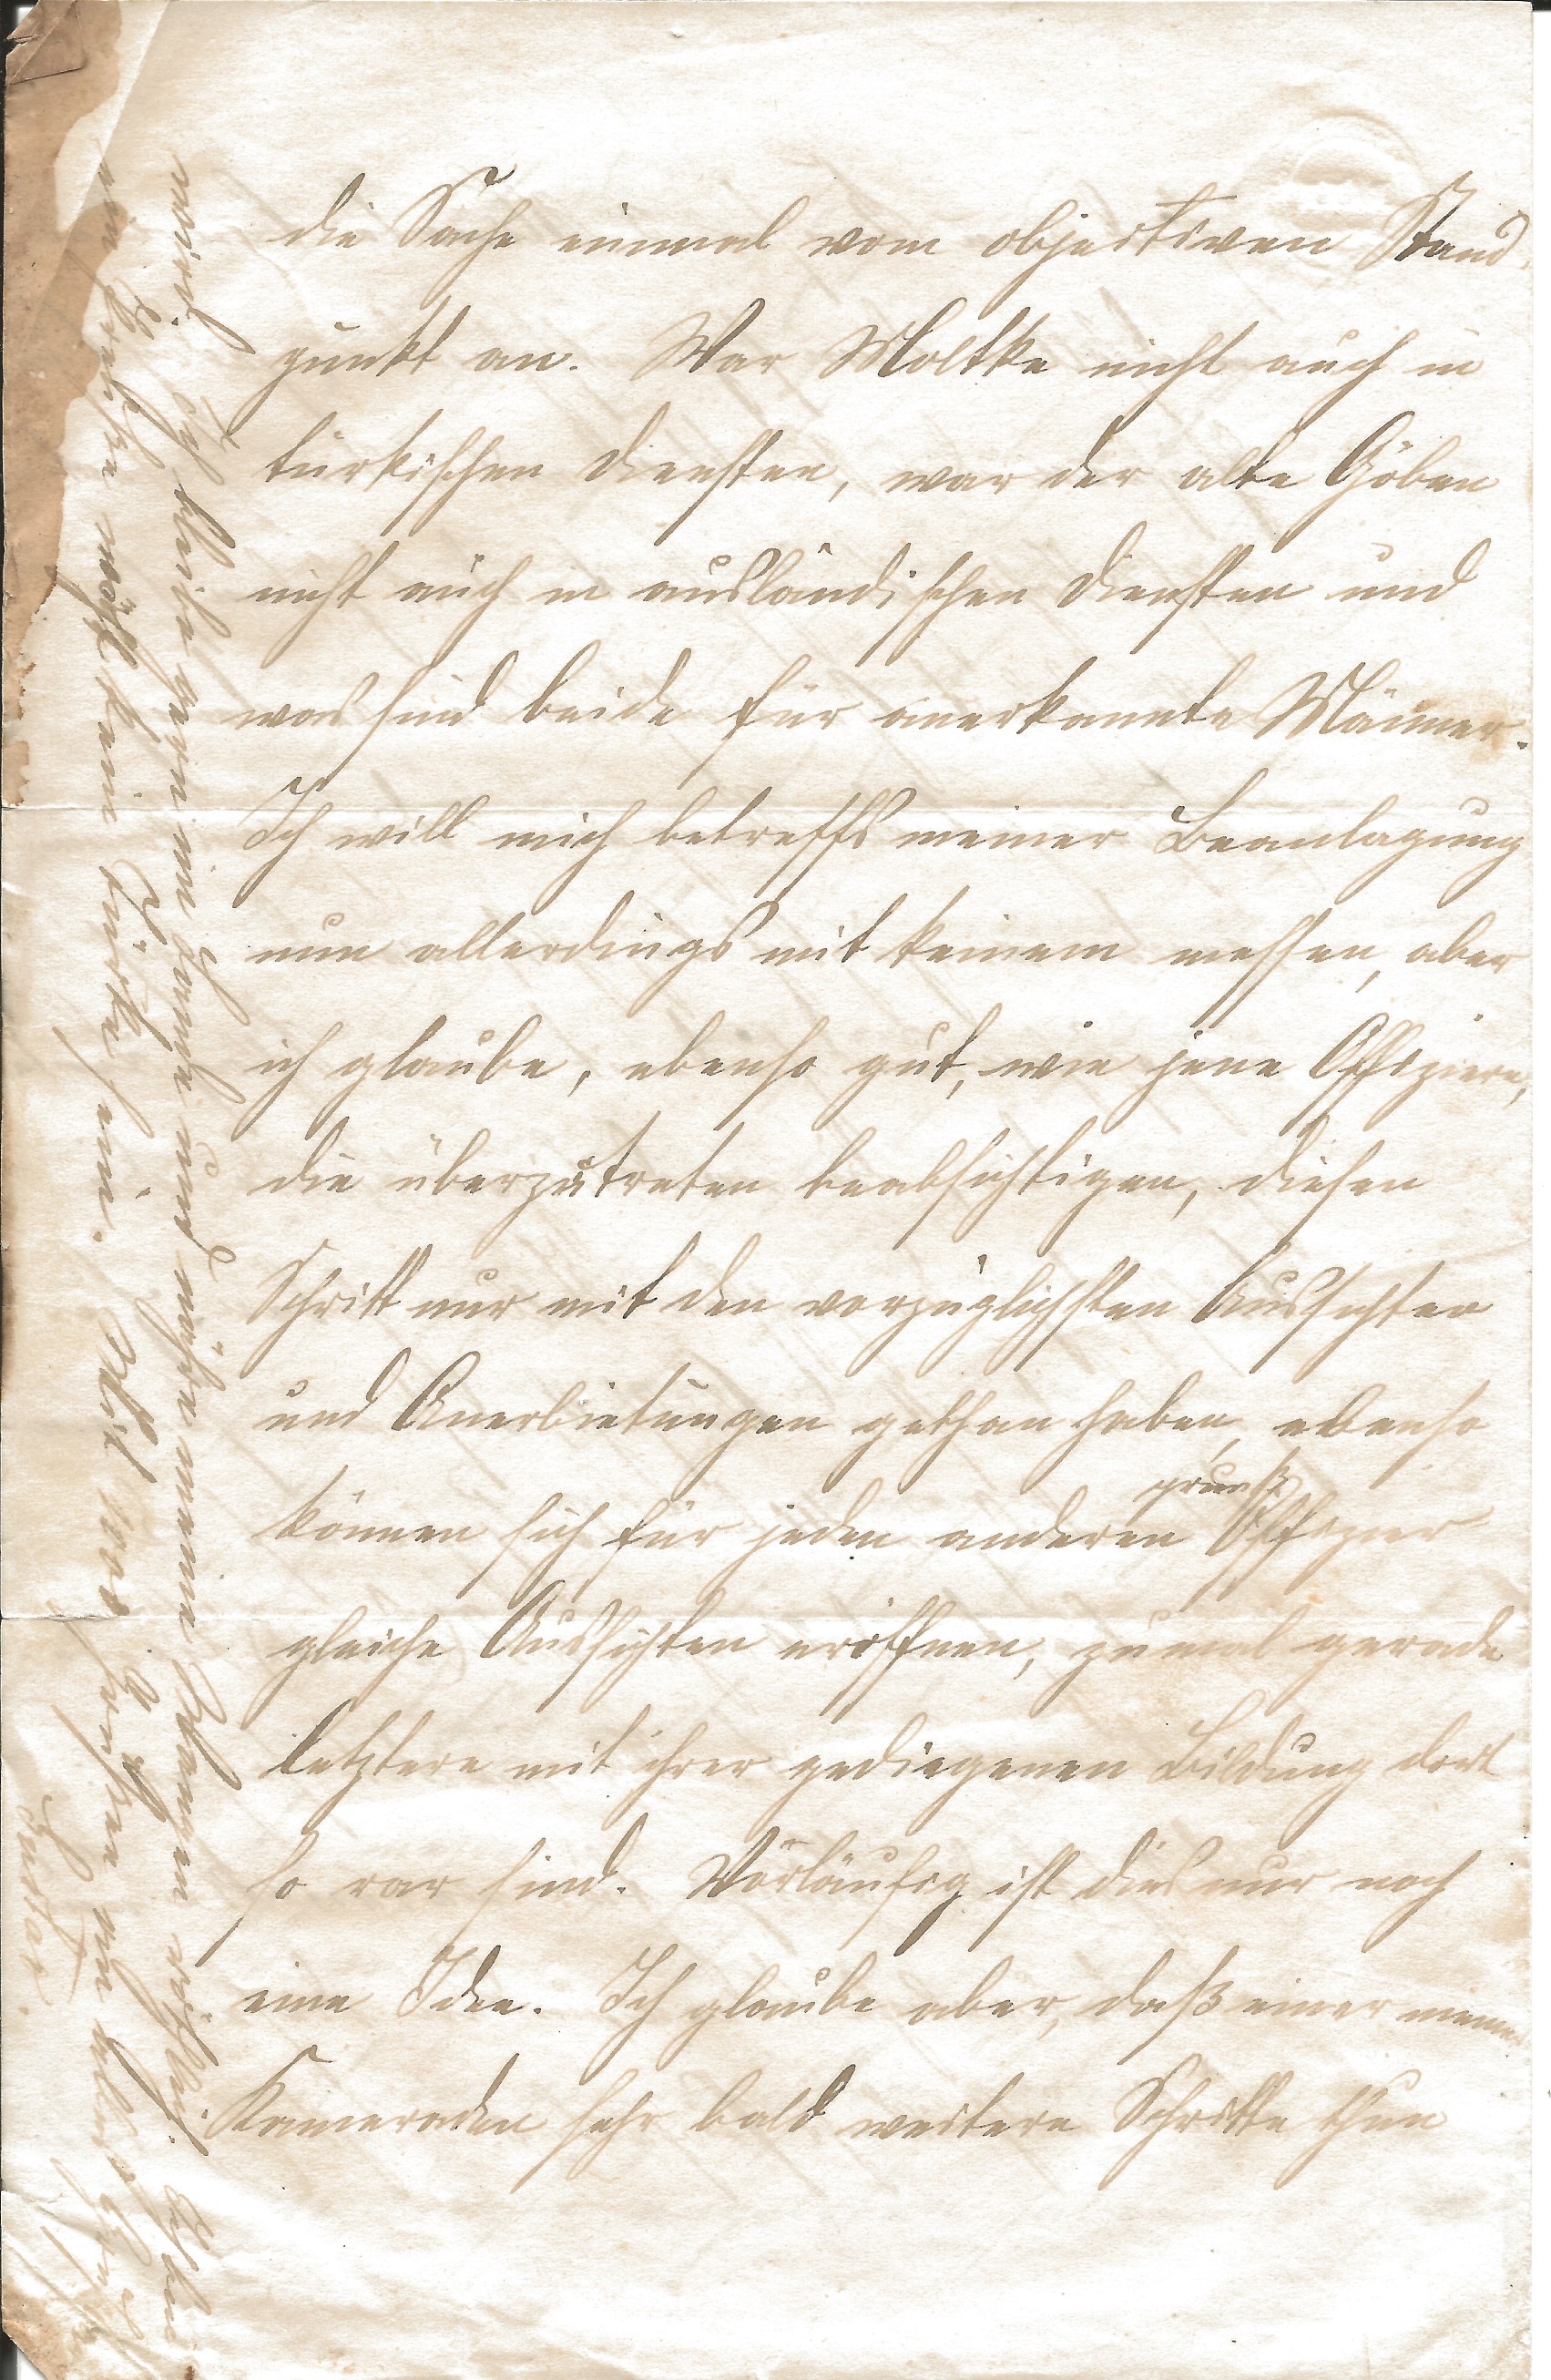 die Sache einmal vom objectiven Stand-
punkt an. War Moltke nicht auch in
türkischen Diensten, war der alte Göben
nicht auch in ausländischen Diensten und
was sind beide für anerkannte Männer.
Ich will mich betreffs meiner Beanlagung
nun allerdings mit keinem messen, aber
ich glaube, ebenso gut, wie jene Offiziere,
die überzutreten beabsichtigen, diesen
Schritt nur mit den vorzüglichsten Aussichten
und Anerbietungen gethan haben, ebenso
können sich für jeden anderen preuß. Offizier
gleiche Aussichten eröffnen, zumal gerade
letztere mit ihrer gediegenen Bildung dort
so rar sind. Vorläufig ist dies nur noch
eine Idee. Ich glaube aber, daß einer meiner
Kameraden sehr bald weitere Schritte thun
wird. Ich bleibe gern im Lande und nähre meine redlich.
nicht keine Stärke sein. Mit 1000 Grüßen